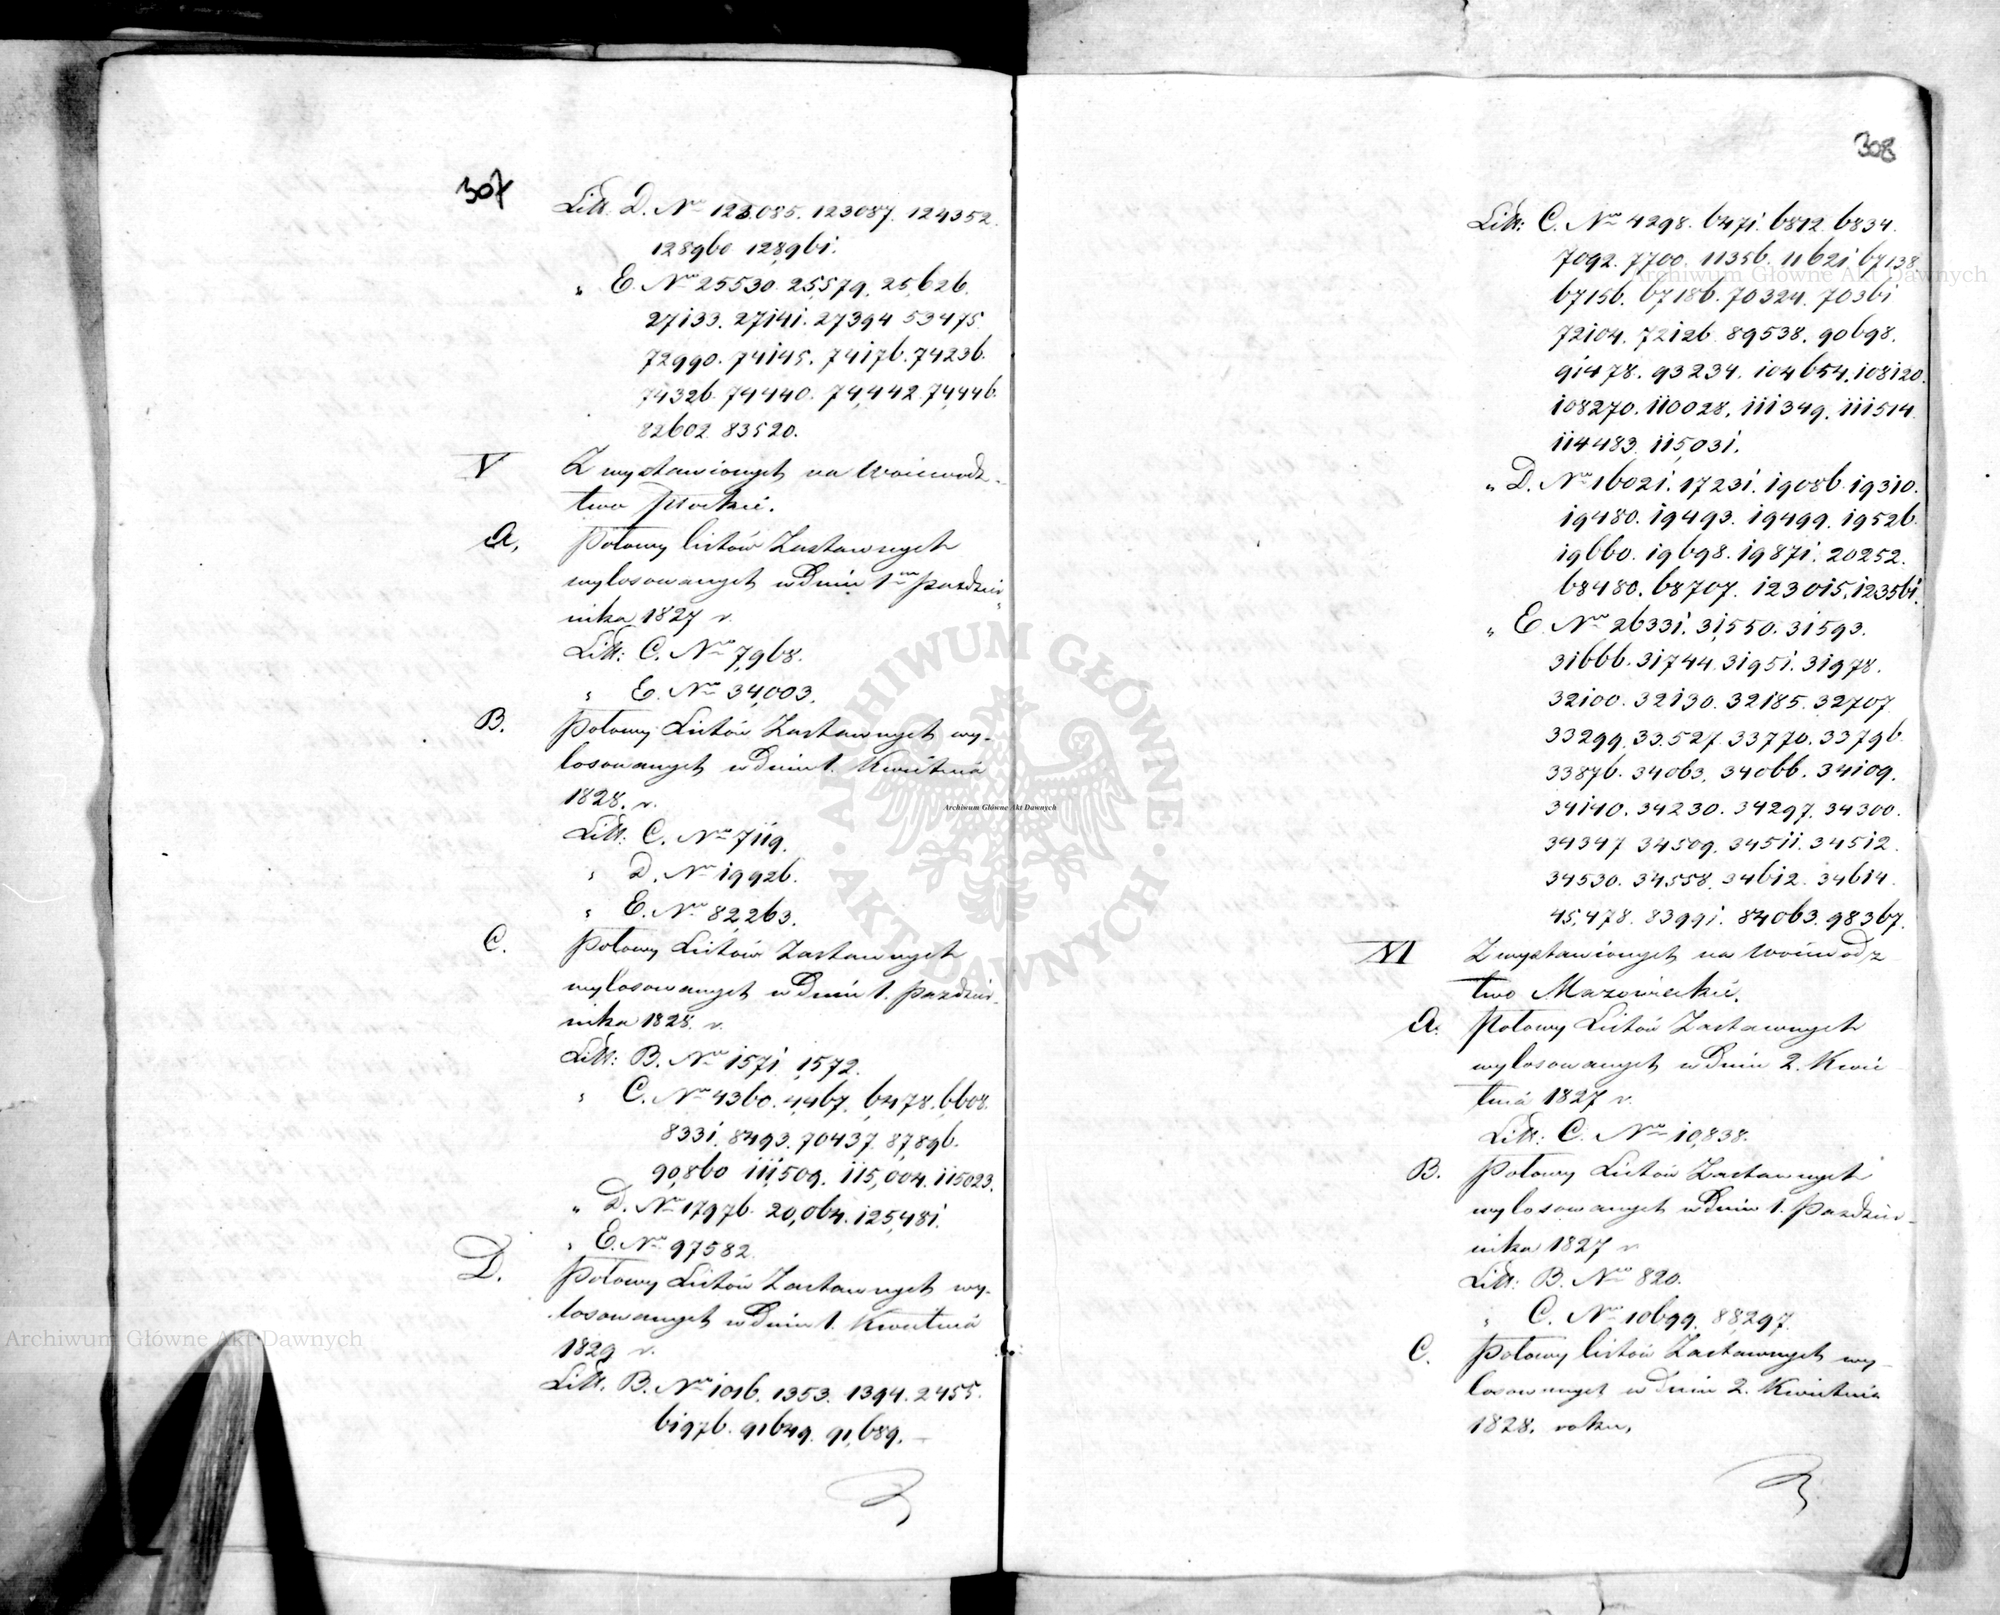 307
Litt. D. Nro 123085. 123087. 124352.
128960 128961.
„ E. Nro 25530. 25,579. 25,626.
27133. 27141. 27394 53475.
72990. 74145. 74176. 74236.
74326. 74440. 74,442. 74,446.
82602 83520.
V Z wystawionych na Woiewodz-
two Płockie.
A, Połowy listów Zastawnych
wylosowanych w Dniu 1go Paździer-
nika 1827 r.
Litt: C. Nro 7,968.
„ E. Nro 34,003.
B. Połowy Listów Zastawnych wy-
losowanych w Dniu 1. Kwietnia
1828. r.
Litt: C. Nro 7119.
„ D. Nro 19926.
„ E. Nro 82,263.
C. Połowy Listów Zastawnych
wylosowanych w Dniu 1. Paździer-
nika 1828. r.
Litt: B. Nro 1571 1,572.
„ C. Nro 4360. 4,467. 6,478. 6,608.
8331. 8493. 70437. 87,896.
90,860 111,509. 115,004. 115023.
„ D. Nro 17976. 20,064. 125,481.
„ E. Nro 97582.
D. Połowy Listów Zastawnych wy-
losowanych w Dniu 1. Kwietnia
1829 r.
Litt. B. Nro 1016. 1353. 1394. 2455.
61976. 91649. 91,689.
308
Litt: C. Nro 4298. 6471. 6812. 6834.
7092. 7700. 11356. 11621 67138
67156. 67186. 70324. 70361
72104. 72126 89538. 90698.
91478. 93234. 104654. 108120.
108270. 110028. 111349. 111514.
114483. 115,031.
„ D. Nro 16021. 17231. 19086. 19310.
19480. 19493. 19499. 19526.
19660. 19698. 19871. 20252.
68480. 68707. 123015. 123561.
„ E. Nro 26331. 31,550. 31593.
31666. 31744. 31951. 31978.
32100. 32130. 32185. 32707
33299. 33.527 33770. 33796.
33876. 34063. 34066. 34109.
34140. 34230. 34297. 34300.
34347 34509. 34511. 34512.
34530. 34558. 34612. 34614.
45,478. 83991. 84063. 98367.
VI Z wystawionych na Woiewodz
two Mazowieckie.
A. Połowy Listów Zastawnych
wylosowanych w Dniu 2. Kwie
tnia 1827 r.
Litt: C. Nro 10,838.
B. Połowy Listów Zastawnych
wylosowanych w Dniu 1. Paździer-
nika 1827 r
Litt: B. Nro 820.
„ C. Nro 10699. 88297.
C. Połowy listów Zastawnych wy-
losowanych w Dniu 2. Kwietnia
1828. roku.
Archiwum Główne Akt Dawnych
ARCHIWUM GŁÓWNE
AKT DAWNYCH
Archiwum Główne Akt Dawnych
Archiwum Główne Akt Dawnych